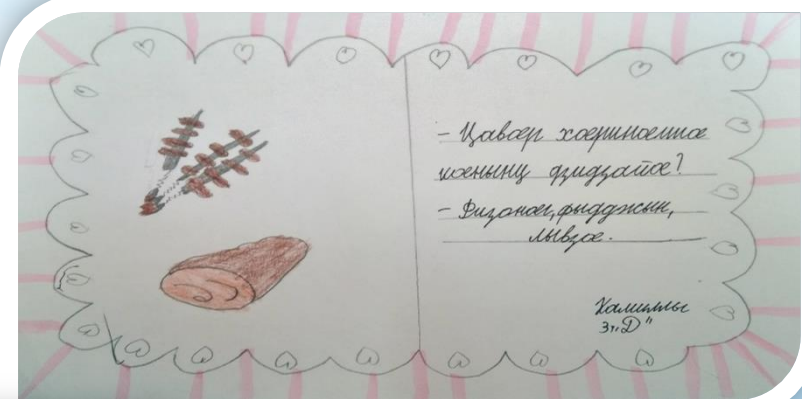 – Цавӕр хӕринӕгтӕ
кӕнынц дзидзайӕ?
– Физонӕг, фыдджын,
лывзӕ.
Камиллы
3 „Д“